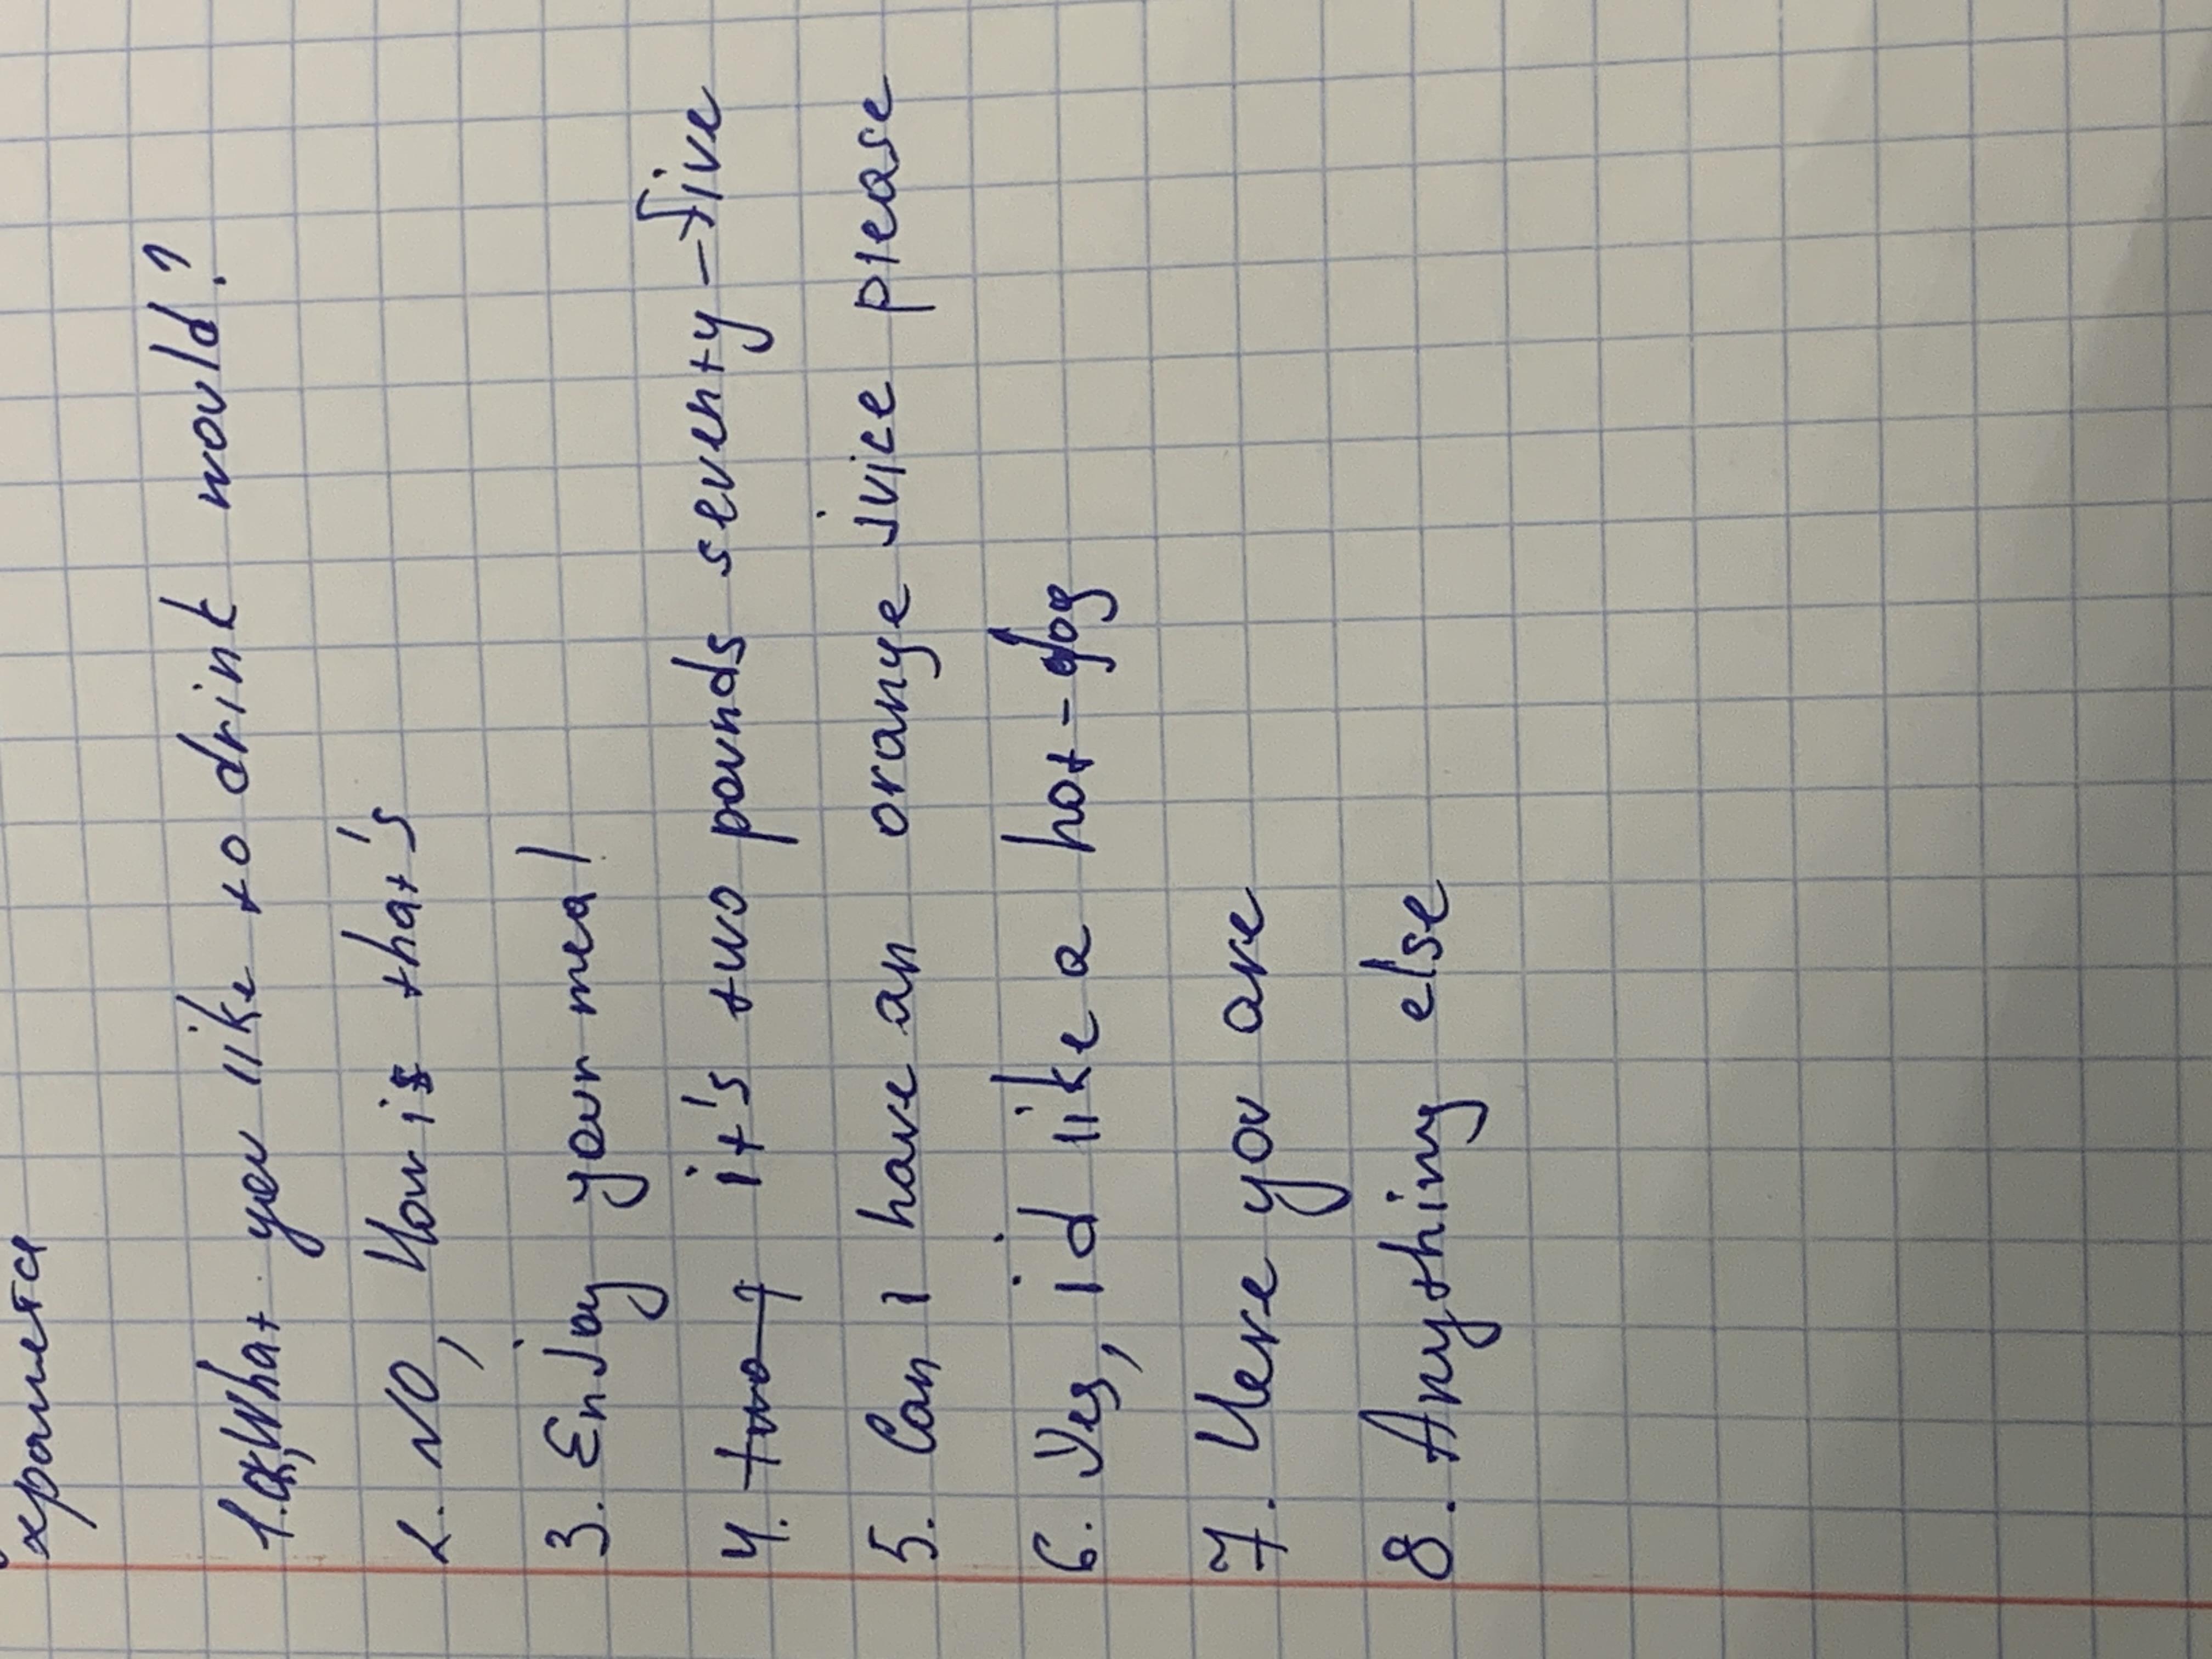 хранится
1. What you like to drink would?
2. NO, How is that's
3. Enjoy your meal
4. two it's two pounds seventy-five
5. Can I have an orange juice please
6. Yes, id like a hot-dog
7. Here you are
8. Anything else